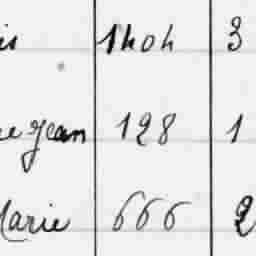 is 1404 3
ce Jean 128 1
Marie 666 2